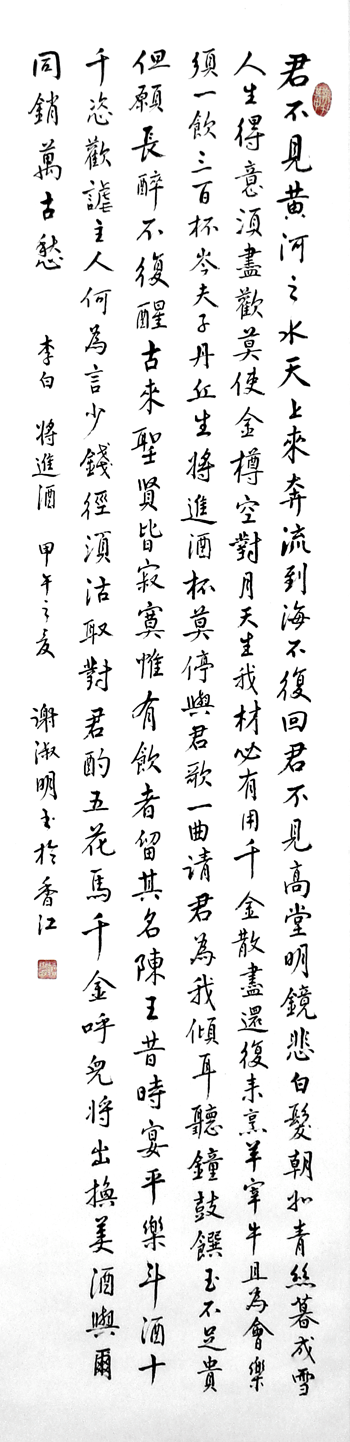 君不見黄河之水天上來奔流到海不復回君不見高堂明鏡悲白髮朝如青絲暮成雪
人生得意須盡歡莫使金樽空對月天生我材必有用千金散盡還復來烹羊宰牛且為會樂
須一飲三百杯岑夫子丹丘生將進酒杯莫停與君歌一曲請君為我傾耳聽鐘鼓饌玉不足貴
但願長醉不復醒古來聖賢皆寂寞惟有飲者留其名陳王昔時宴平樂斗酒十
千恣歡謔主人何為言少錢徑須沽取對君酌五花馬千金呼兒將出換美酒與爾
同銷萬古愁 李白 將進酒 甲午之夏 謝淑明書於香江